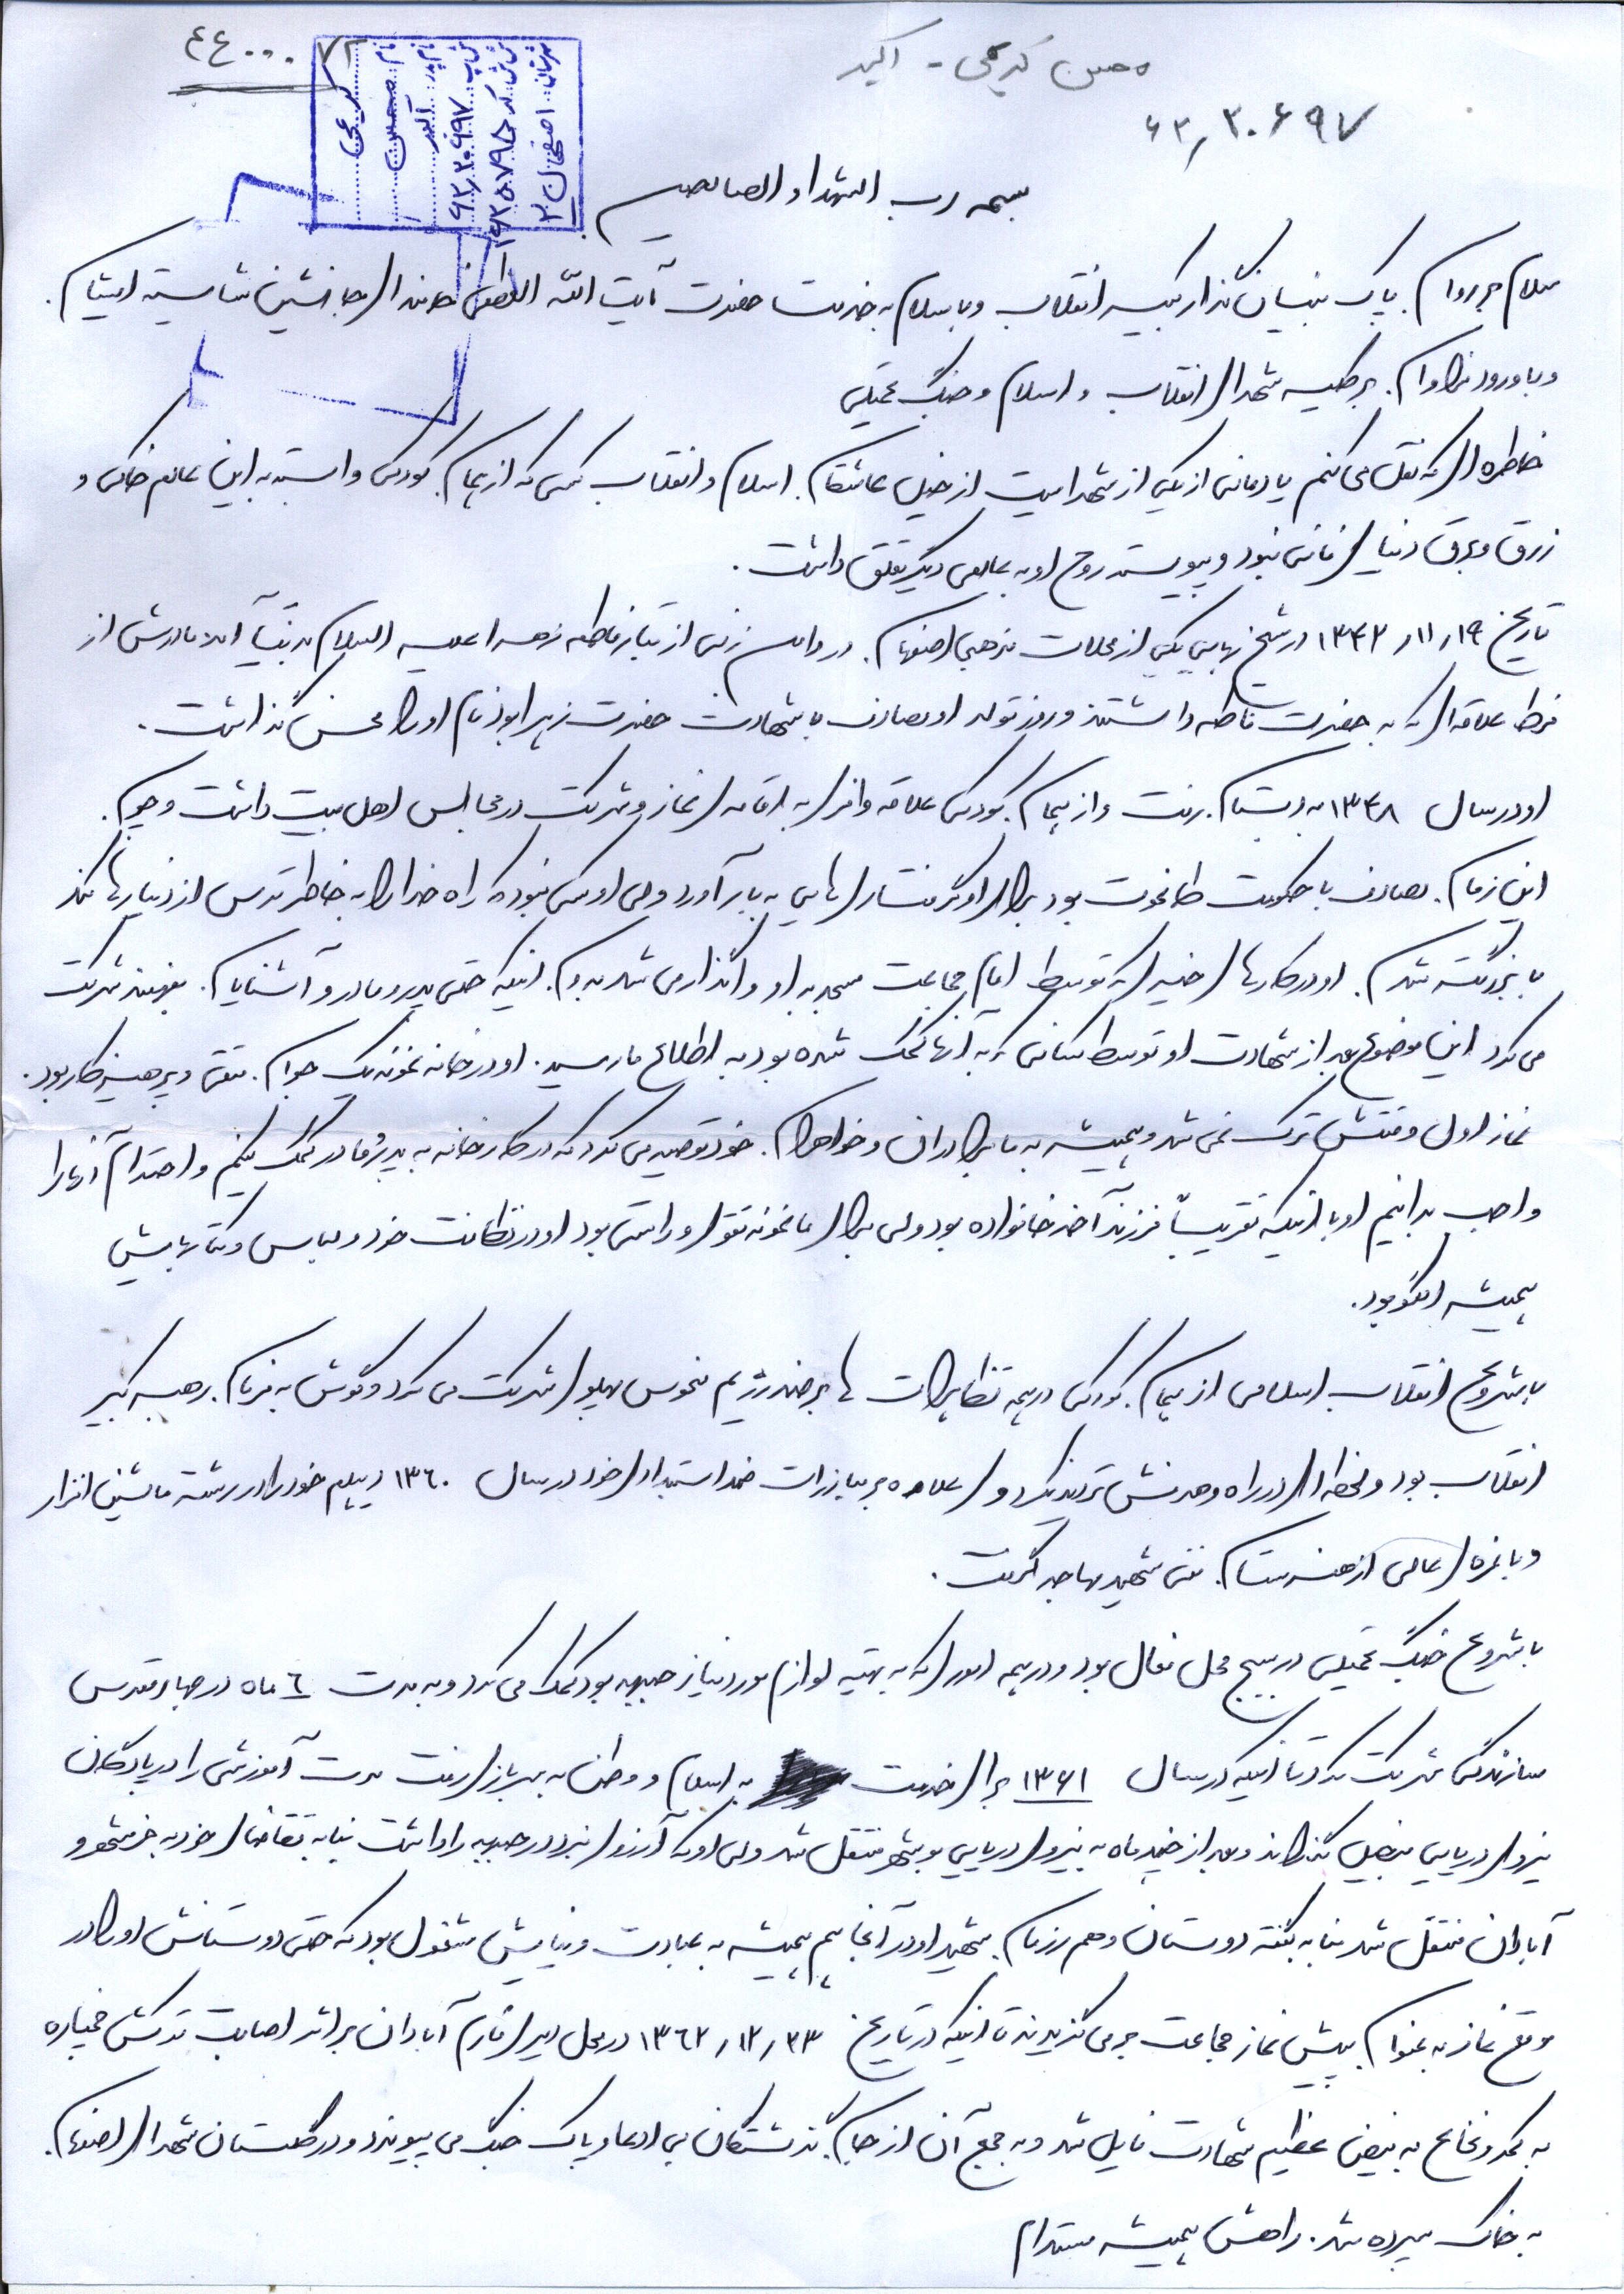 ۷۲ ٤٤۰۰۰
محسن کریمی - اکبر
۶۲٫۲۰۶۹۷
نام: کریمی
نام: محسن
نام پدر: اکبر
ش پ: ۶۲٫۲۰۶۹۷
شهرستان: اصفهان ۲
بسمه رب الشهداء و الصالحین
سلام بر روان پاک بنیان گذار کبیر انقلاب و با سلام به خدمت حضرت آیت الله العظمی خامنه ای جانشین شایسته ایشان.
و با درود فراوان بر کلیه شهدای انقلاب و اسلام و جنگ تحمیلی
خاطره ای که نقل می کنم یادمانی از یکی از شهداییست از خیل عاشقان اسلام و انقلاب کسی که از همان کودکی وابسته به این عالم خاکی و
زرق و برق دنیای فانی نبود و پیوسته روح او به عالمی دیگر تعلق داشت.
تاریخ ۱۳۴۲٫۱۱٫۱۹ در شیخ بهایی یکی از محلات مذهبی اصفهان در دامن زنی از تبار فاطمه زهرا علیه السلام به دنیا آمد مادرش از
فرط علاقه ای که به حضرت فاطمه داشتند و روز تولد او مصادف با شهادت حضرت زهرا بود نام او را محسن گذاشت.
او در سال ۱۳۴۸ به دبستان رفت و از همان کودکی علاقه وافری به اقامه ی نماز و شرکت در مجالس اهل بیت داشت و چون
این زمان مصادف با حکومت طاغوت بود برای او گرفتاری هایی به بار آورد ولی او کسی نبود که راه خدا را به خاطر ترس از دنیا رها کند
با بزرگتر شدن او در کارهای خیری که توسط امام جماعت مسجد به او واگذار می شد بدون اینکه حتی پدر و مادر و آشنایان بفهمند شرکت
می کرد این موضوع بعد از شهادت او توسط کسانی که به آنها کمک شده بود به اطلاع ما رسید. او در خانه نمونه یک جوان متقی و پرهیزکار بود.
نماز اول وقتش ترک نمی شد و همیشه به ما برادران و خواهران خود توصیه می کرد که در کار خانه به پدر و مادر کمک بکنیم و احترام آنها را
واجب بدانیم او با اینکه تقریباً فرزند آخر خانواده بود ولی برای ما نمونه تقوا و راستی بود او در نظافت خود و لباس و کتابهایش
همیشه الگو بود.
با شروع انقلاب اسلامی از همان کودکی در همه تظاهرات ها بر ضد رژیم منحوس پهلوی شرکت می کرد و گوش به فرمان رهبر کبیر
انقلاب بود و لحظه ای در راه و هدفش تردید نکرد و علاوه بر مبارزات ضد استبدادی خود در سال ۱۳۶۰ دیپلم خود را در رشته ماشین افزار
و با نمره ی عالی از هنرستان فنی شهید مهاجر گرفت.
با شروع جنگ تحمیلی در بسیج محل فعال بود و در همه اموری که به تهیه لوازم مورد نیاز جبهه بود کمک می کرد و به مدت ۶ ماه در جهاد مقدس
سازندگی شرکت کرد تا اینکه در سال ۱۳۶۱ برای خدمت به اسلام و وطن به سربازی رفت مدت آموزشی را در پادگان
نیروی دریایی منجیل گذراند و بعد از چند ماه به نیروی دریایی بوشهر منتقل شد ولی او که آرزوی نبرد در جبهه را داشت بنا به تقاضای خود به خرمشهر و
آبادان منتقل شد بنا به گفته دوستان و هم رزمان شهید او در آنجا هم همیشه به عبادت و نیایش مشغول بود که حتی دوستانش او را در
موقع نماز به عنوان پیش نماز جماعت بر می گزیدند تا اینکه در تاریخ ۱۳۶۲٫۱۲٫۲۳ در محل آبادان بر اثر اصابت ترکش خمپاره
به کمر و نخاع به فیض عظیم شهادت نایل شد و به جمع آن از جان گذشتگان بی ادعا و پاک جنگ می پیوندد و در گلستان شهدای اصفهان
به خاک سپرده شد. راهش همیشه مستدام